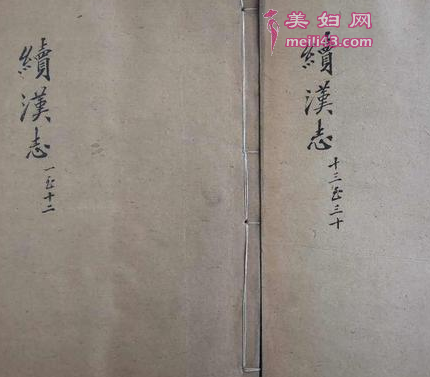 續漢志
一至十二
續漢志
十三至三十
美妇网
meili43.com